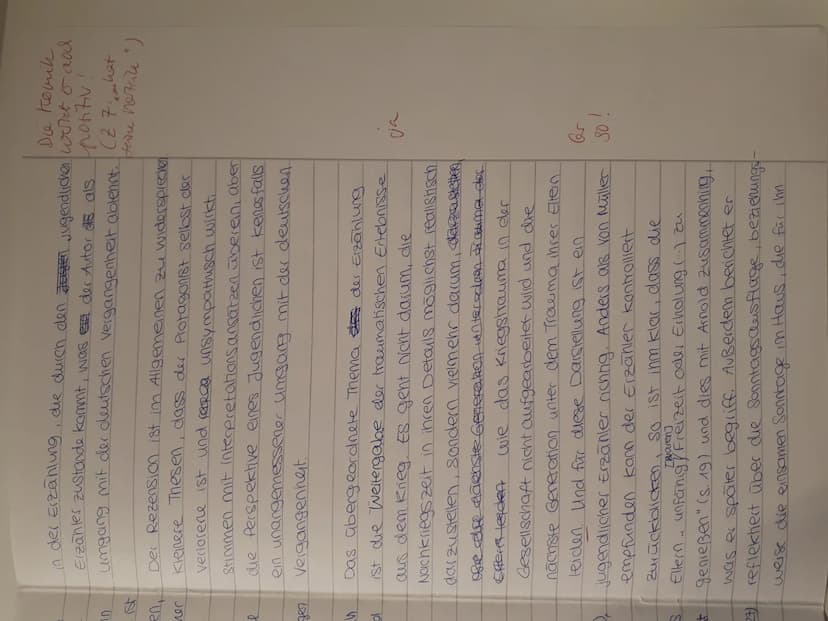 in der Erzählung, die durch den jugendlichen
Erzähler zustande kommt, was der Autor als
Umgang mit der deutschen Vergangenheit ablehnt.
Der Rezension ist im Allgemeinen zu widersprechen
kleinere Thesen, dass der Protagonist selbst der
verlorene ist und unsympathisch wirkt
stimmen mit Interpretationsansätzen überein, aber
die Perspektive eines Jugendlichen ist keinesfalls
ein unangemessener Umgang mit der deutschen
Vergangenheit.
Das übergeordnete Thema der Erzählung
ist die Weitergabe der traumatischen Erlebnisse
aus dem Krieg. Es geht nicht darum, die
Nachkriegszeit in ihren Details möglichst realistisch
darzustellen, sondern vielmehr darum,
wie das Kriegstrauma in der
Gesellschaft nicht aufgearbeitet wird und die
nächste Generation unter dem Trauma ihrer Eltern
leiden. Und für diese Darstellung ist ein
jugendlicher Erzähler richtig. Anders als von Müller
empfunden kann der Erzähler kontrolliert
zurückblicken, so ist ihm klar, dass die
Eltern „unfähig [waren] Freizeit oder Erholung (...) zu
genießen" (S. 19) und dies mit Arnold zusammenhing,
was er später begriff. Außerdem berichtet er
reflektiert über die Sonntagsausflüge, beziehungs-
weise die einsamen Sonntage im Haus, die für ihn
Die Komik
positiv!
ja
so!